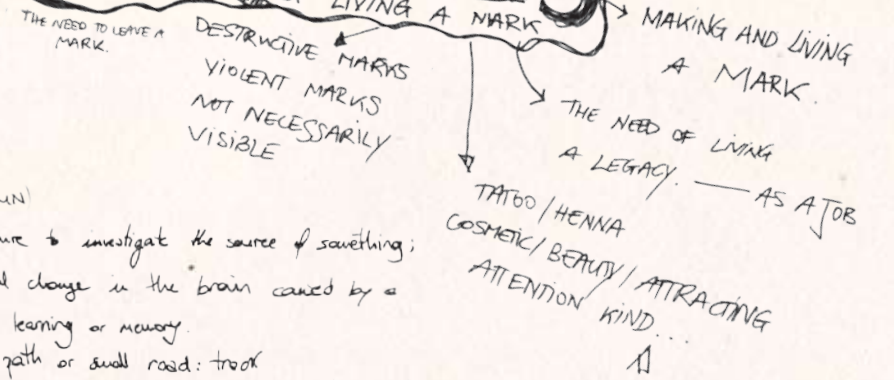 LIVING A MARK
THE NEED TO LEAVE A
MARK.
DESTRUCTIVE MARKS
VIOLENT MARKS
NOT NECESSARILY
VISIBLE
MAKING AND LIVING
A MARK.
THE NEED OF LIVING
A LEGACY. — AS A JOB
TATOO / HENNA
COSMETIC / BEAUTY / ATTRACTING
ATTENTION KIND...
to investigate the source of something;
change in the brain caused by a
learning or memory.
path or small road: track